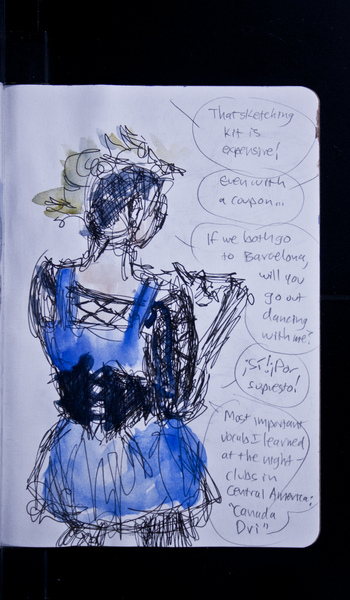 That sketching
kit is
expensive!
Even with
a coupon...
If we both go
to Barcelona,
will you
go out
dancing
with me?
¡Sí! ¡Por
supuesto!
Most important
vocab I learned
at the night-
clubs in
Central America:
"Canada
Dri"